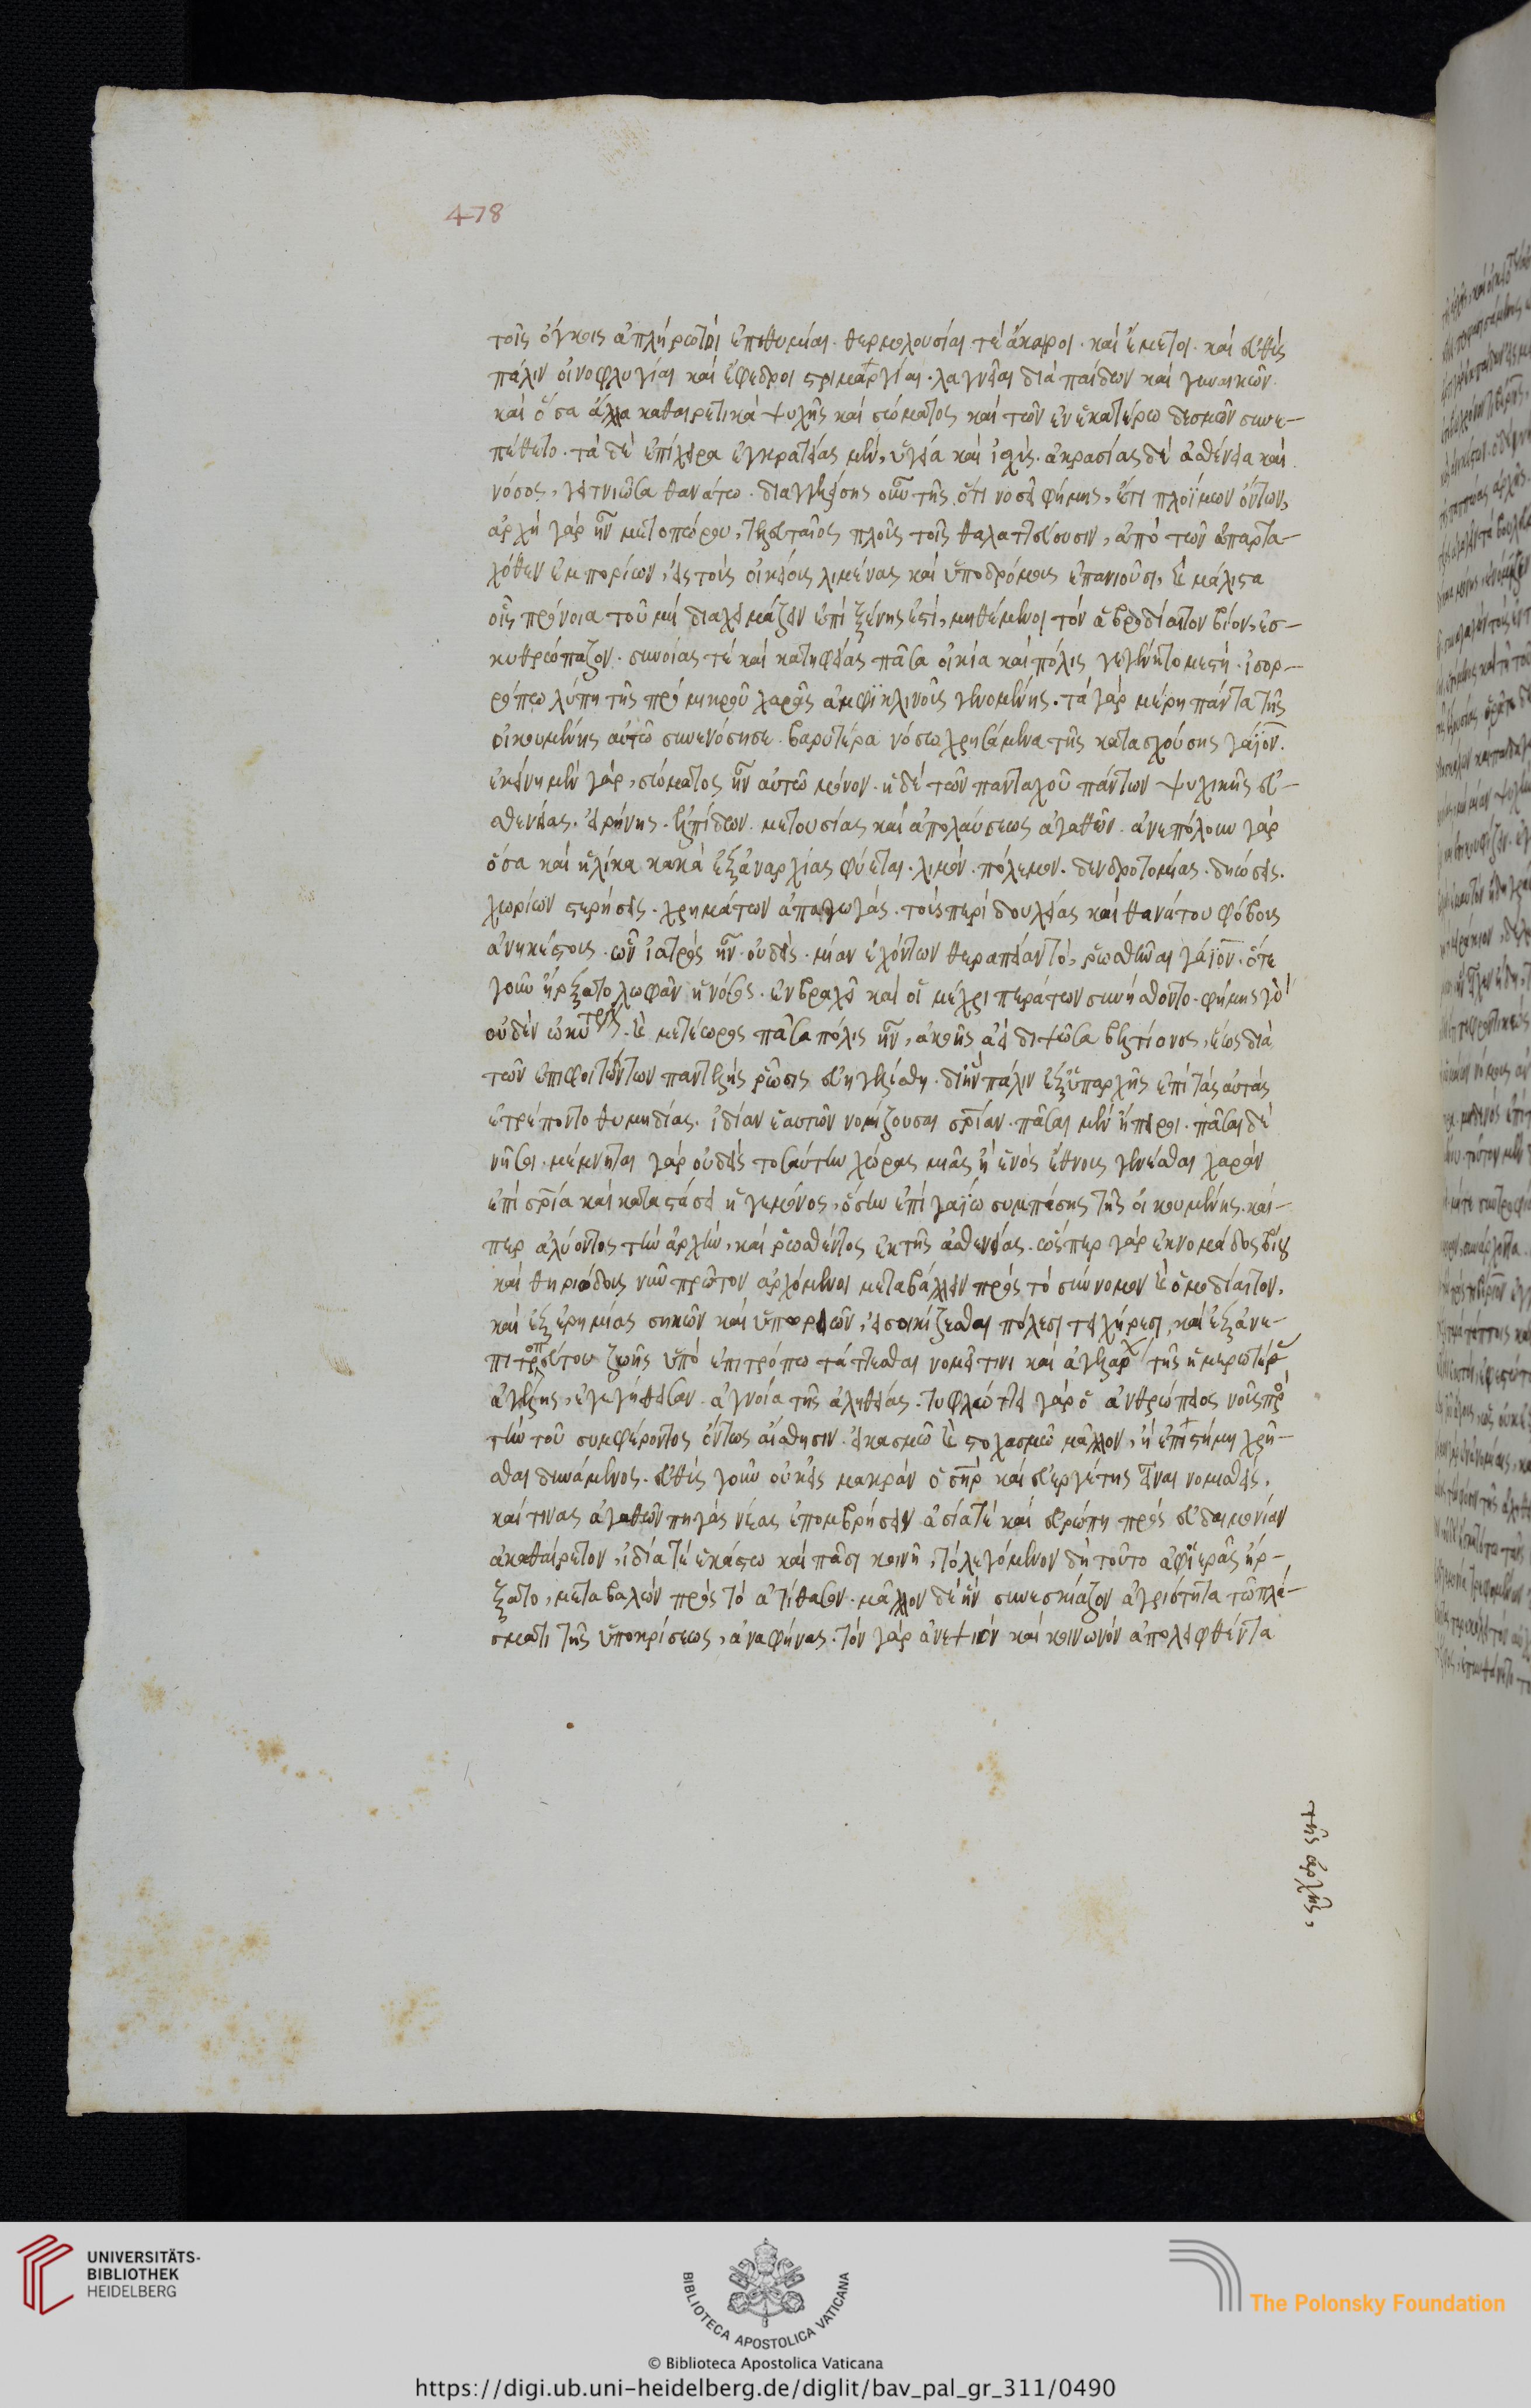 478
τοῖς ὄγκοις ἀπλήρωτοι ἐπιθυμίαι. θερμολουσίαι τὲ ἄκαιροι. καὶ ἔμετοι. καὶ εὐθὺς
πάλιν οἰνοφλυγίαι καὶ ἔφεδροι γριμαργίαι. λαγνεῖαι διὰ παίδων καὶ γυναικῶν.
καὶ ὅσα ἄλλα καθαιρετικὰ ψυχῆς καὶ σώματος καὶ τῶν ἐν ἑκατέρω δεσμῶν συνε-
πέθετο. τὰ δὲ ἐπίχειρα ἐγκρατείας μὲν, ὑγεία καὶ ἰσχύς. ἀκρασίας δὲ ἀσθένεια καὶ
νόσος, γειτνιῶσα θανάτω. διαγγελείσης οὖν τῆς ὅτι νοσεῖ φήμης, ἔτι πλοΐμων ὄντων,
ἀρχὴ γὰρ ἦν μετοπώρου, τελευταῖος πλοῦς τοῖς θαλαττεύουσιν, ἀπὸ τῶν ἁπαντα-
χόθεν ἐμπορίων, εἰς τοὺς οἰκείους λιμένας καὶ ὑποδρόμους ἐπανιοῦσι, καὶ μάλιστα
οἷς πρόνοια τοῦ μὴ διαχειμάζειν ἐπὶ ξένης ἐστὶ, μεθέμενοι τὸν ἁβροδίαιτον βίον, ἐσ-
κυθρώπαζον. συννοίας τὲ καὶ κατηφείας πᾶσα οἰκία καὶ πόλις γεγένητο μεστή. ἰσορ-
ρόπω λύπη τῆς πρὸ μικροῦ χαρᾶς ἀμφικλινοῦς γενομένης. τὰ γὰρ μέρη πάντα τῆς
οἰκουμένης αὐτῶ συνενόσησε. βαρυτέρα νόσω χρησάμενα τῆς κατασχούσης γάϊον.
ἐκείνη μὲν γὰρ, σώματος ἦν αὐτῶ μόνον. ἡ δὲ τῶν πανταχοῦ πάντων ψυχικῆς εὐ-
σθενείας. εἰρήνης. ἐλπίδων. μετουσίας καὶ ἀπολαύσεως ἀγαθῶν. ἀνεπόλουν γὰρ
ὅσα καὶ ἡλίκα κακὰ ἐξ ἀναρχίας φύεται. λιμόν. πόλεμον. δενδροτομίας. δηώσεις.
χωρίων στερήσεις. χρημάτων ἀπαγωγάς. τοὺς περὶ δουλείας καὶ θανάτου φόβους
ἀνηκέστους. ὧν ἰατρὸς ἦν οὐδείς. μίαν ἐχόντων θεραπείαν τὸ, ῥωσθῆναι γάϊον. ὅτε
γοῦν ἤρξατο λωφᾶν ἡ νόσος. ἐν βραχεῖ καὶ οἱ μέχρι περάτων συνήσθοντο. φήμης γὰρ
οὐδὲν ὠκύτερον. καὶ μετέωρος πᾶσα πόλις ἦν, ἀκοῆς ἀεὶ διψῶσα βελτίονος, ἕως διὰ
τῶν ἐπιφοιτώντων παντελὴς ῥῶσις εὐηγγελίσθη. δι' ἣν πάλιν ἐξ ὑπαρχῆς ἐπὶ τὰς αὐτὰς
ἐτρέποντο θυμηδίας. ἰδίαν ἑαυτῶν νομίζουσαι σρίαν. πᾶσαι μὲν ἤπειροι. πᾶσαι δὲ
νῆσοι. μέμνηται γὰρ οὐδεὶς τοσαύτην χώρας μιᾶς ἢ ἑνὸς ἔθνους γενέσθαι χαρὰν
ἐπὶ σρία καὶ καταστάσει ἡγεμόνος, ὅσην ἐπὶ γαΐω συμπάσης τῆς οἰκουμένης. καί-
περ ἀλύοντος τὴν ἀρχὴν, καὶ ῥωσθέντος ἐκ τῆς ἀσθενείας. ὥσπερ γὰρ ἐκ νομάδος βίου
καὶ θηριώδους νῦν πρῶτον ἀρχόμενοι μεταβάλλειν πρὸς τὸ σύννομον καὶ ὁμοδίαιτον,
καὶ ἐξ ἐρημίας σηκῶν καὶ ὑπωρειῶν, εἰσοικίζεσθαι πόλεσι τειχήρεσι, καὶ ἐξ ἀνε-
πιτροπεύτου ζωῆς ὑπὸ ἐπιτρόπω τάττεσθαι νομεῖ τινι καὶ ἀγελάρχῃ τῆς ἡμερωτέρας
ἀγέλης, ἐγεγήθεισαν. ἀγνοία τῆς ἀληθείας. τυφλώττει γὰρ ὁ ἀνθρώπειος νοῦς πρὸς
τὴν τοῦ συμφέροντος ὄντως αἴσθησιν. εἰκασμῶ καὶ στοχασμῶ μᾶλλον, ἢ ἐπιστήμη χρῆ-
σθαι δυνάμενος. εὐθὺς γοῦν οὐκ εἰς μακρὰν ὁ σὴρ καὶ εὐεργέτης εἶναι νομισθείς,
καί τινας ἀγαθῶν πηγὰς νέας ἐπομβρήσειν ἀσία τὲ καὶ εὐρώπη πρὸς εὐδαιμονίαν
ἀκαθαίρετον, ἰδία τὲ ἑκάστω καὶ πᾶσι κοινῆ, τὸ λεγόμενον δὴ τοῦτο ἀφ' ἱερᾶς ἤρ-
ξατο, μεταβαλὼν πρὸς τὸ ἀτίθασον. μᾶλλον δὲ ἣν συνεσκίαζον ἀγριότητα τῶ πλά-
σματι τῆς ὑποκρίσεως, ἀναφήνας. τὸν γὰρ ἀνεψιὸν καὶ κοινωνὸν ἀπολειφθέντα
τῆς ἀρχῆς,
UNIVERSITÄTS-
BIBLIOTHEK
HEIDELBERG
BIBLIOTECA APOSTOLICA VATICANA
The Polonsky Foundation
© Biblioteca Apostolica Vaticana
https://digi.ub.uni-heidelberg.de/diglit/bav_pal_gr_311/0490